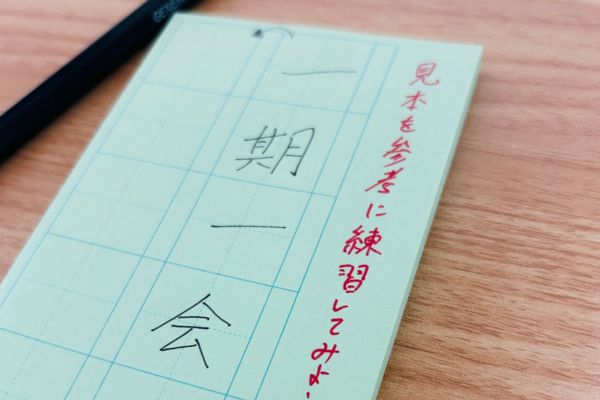 見本を参考に練習してみよ
一期一会